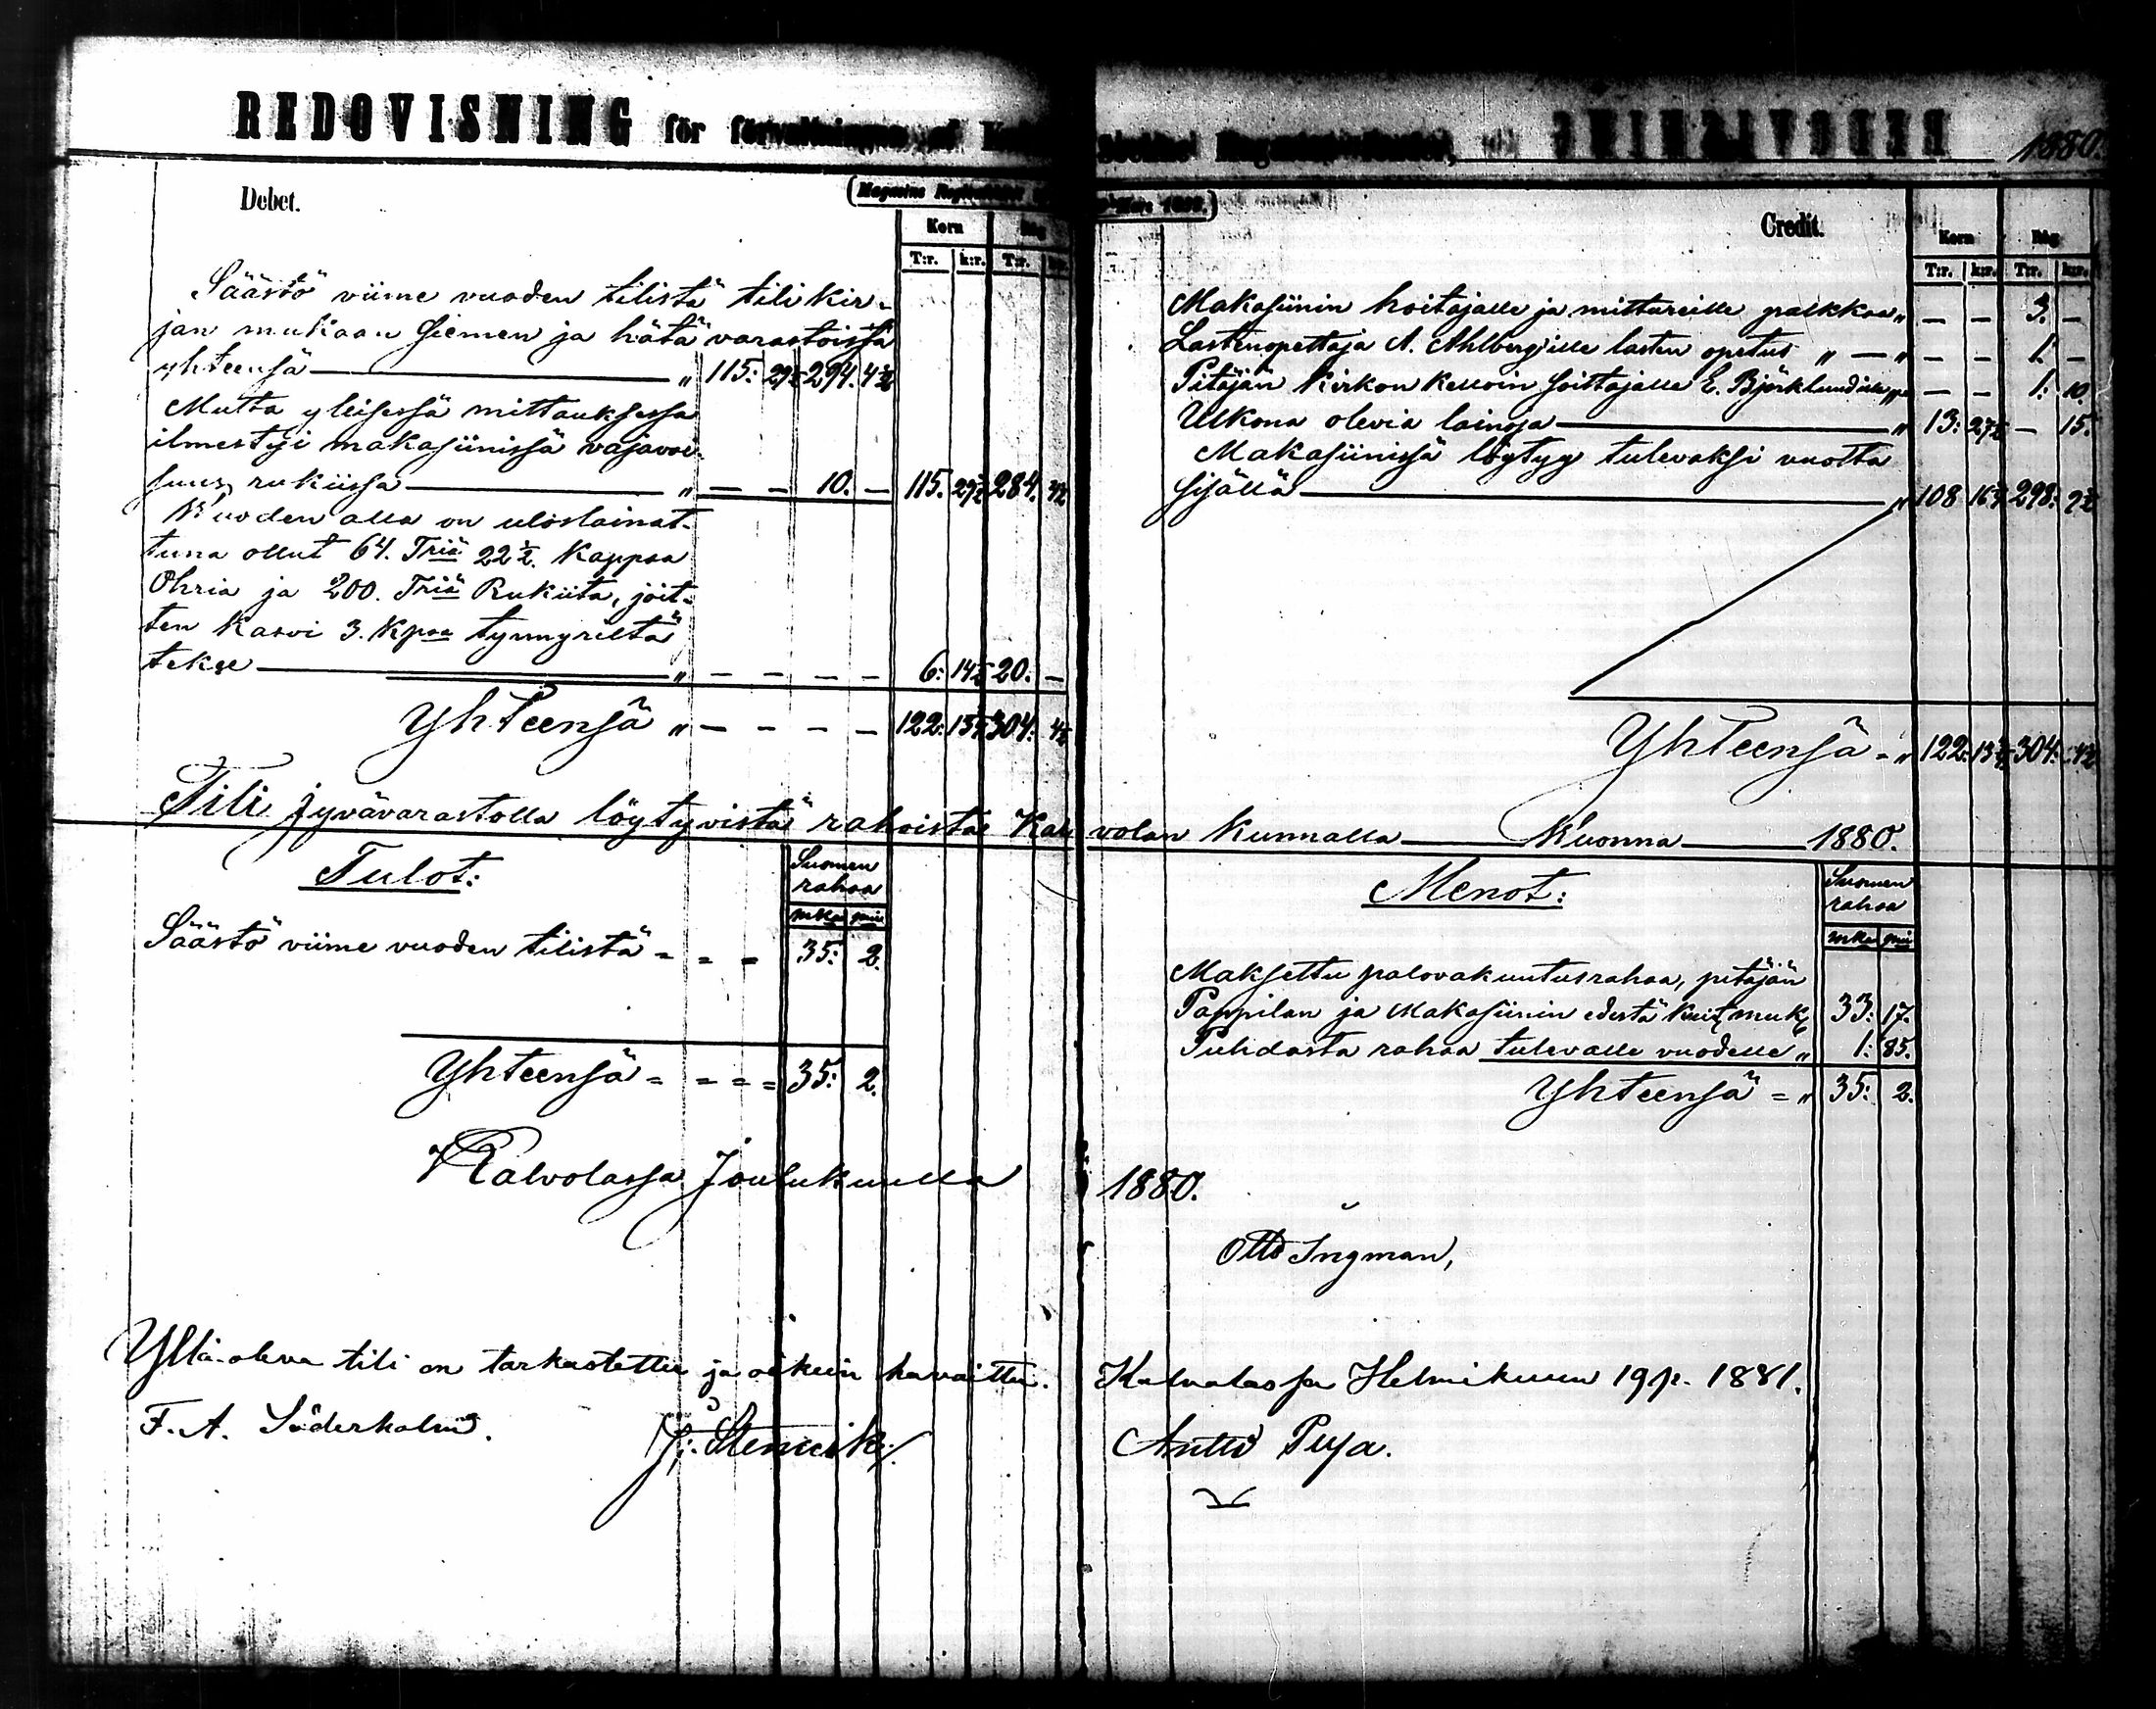 REDOVISNING för förvaltningen af
1880.
Debet.
Korn
T:r. k:r. T:r.
Säästö viime vuoden tilistä tilikir-
jan mukaan siemen ja hätä varastoissa
yhteensä " 115: 29½ 294. 4½
Mutta yleisessä mittauksessa
ilmestyi makasiinissä vajavai-
suus, rukiissa " — — 10. — 115. 29½ 284. 4½
Vuoden alla on uloslainat-
tuna ollut 64. Triä 22½. Kappaa
Ohria ja 200. Triä Rukiita, joit-
ten kasvi 3. Kpaa tynnyriltä
tekee " — — — — 6: 14½ 20. —
Yhteensä " — — — — 122: 13½ 304: 4½
Credit.
Korn Råg
T:r. k:r. T:r. k:r.
Makasiinin hoitajalle ja mittareille palkkaa " — — 3. —
Lastenopettaja A. Ahlberg'ille lasten opetus " — " — — 1. —
Pitäjän Kirkon kelloin soittajalle E. Björklundille — — 1: 10.
Ulkona olevia lainoja " 13: 27½ — 15.
Makasiinissä löytyy tulevaksi vuotta
sisällä " 108 298:
Yhteensä - " 122: 13½ 304: 4½
Tili jyvävarastolla löytyvistä rahoista Kalvolan Kunnalla Vuonna 1880.
Tulot:
Suomen
rahaa
mka
Säästö viime vuoden tilistä = = = 35: 2.
Yhteensä = = = = 35: 2.
Menot:
Suomen
rahaa
mka
Maksettu palovakuutusrahaa, pitäjän
Pappilan ja Makasiinin edestä kuit. muk. 33: 17.
Puhdasta rahaa tulevalle vuodelle " 1: 85.
Yhteensä = " 35: 2.
Kalvolassa Joulukuulla 1880.
Otto Ingman,
Yllä-oleva tili on tarkastettu ja oikein havaittu. Kalvolassa Helmikuun 19 p. 1881.
F. A. Söderholm. Antti